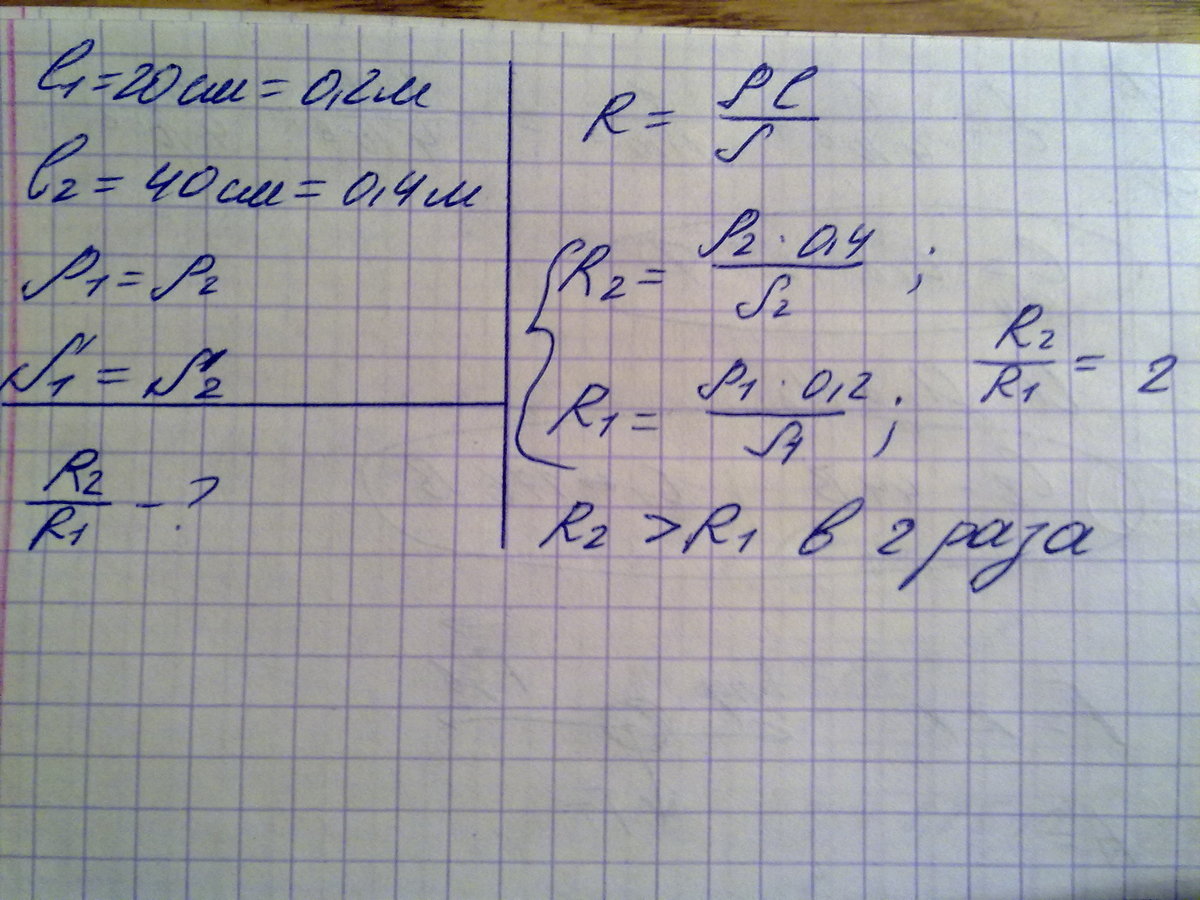 l₁ = 20 см = 0,2 м
l₂ = 40 см = 0,4 м
ρ₁ = ρ₂
S₁ = S₂
R₂/R₁ - ?
R = ρl/S
R₂ = ρ₂ · 0,4/S₂ ;
R₁ = ρ₁ · 0,2/S₁ ;
R₂/R₁ = 2
R₂ > R₁ в 2 раза